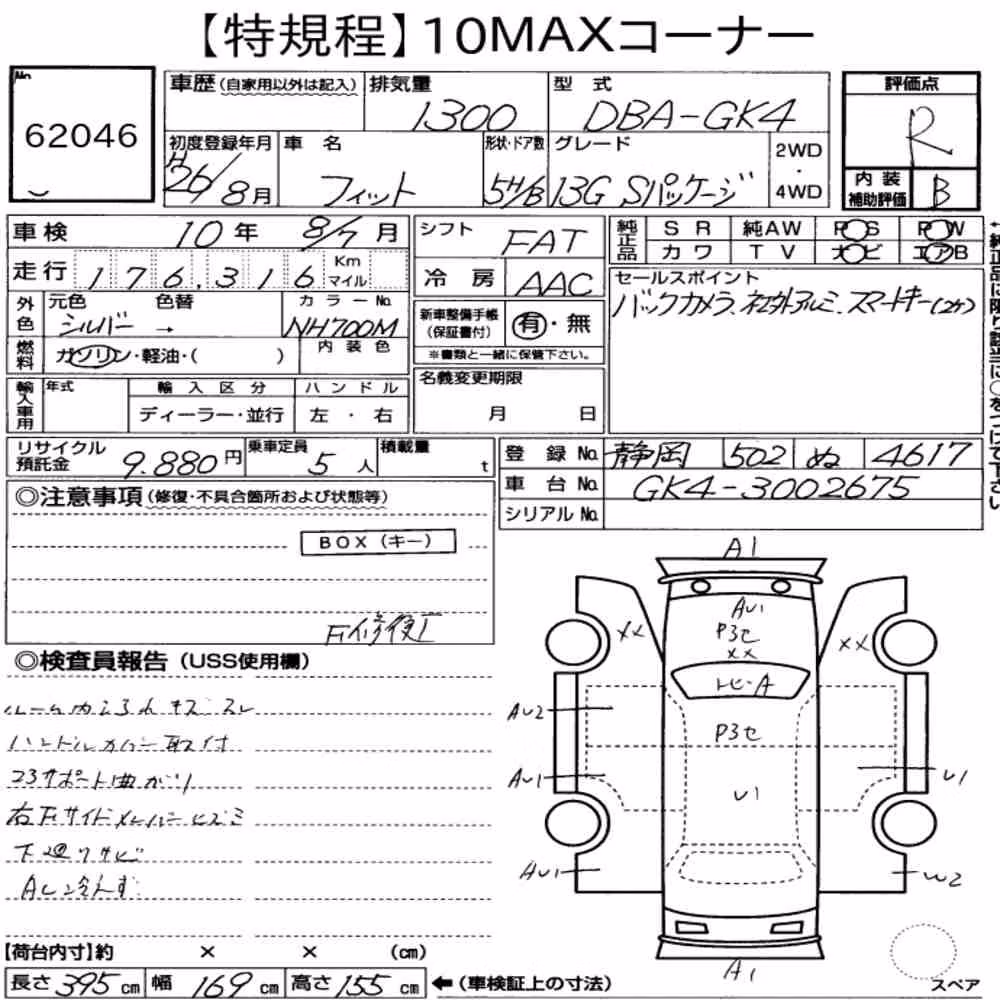 【特規程】10MAXコーナー
No.
62046
車歴(自家用以外は記入)
排気量
1300
型式
DBA-GK4
評価点
R
初度登録年月
H26/8月
車名
フィット
形状・ドア数
5H/B
グレード
13G Sパッケージ
2WD
・
4WD
内装
補助評価
B
車検 10年 8/7月
走行 176,316 Km
マイル
シフト FAT
冷房 AAC
純正品
SR 純AW PS PW
カワ TV ナビ エアB
セールスポイント
バックカメラ、社外アルミ、スマートキー(2ケ)
外色
元色 色替 カラーNo.
シルバー → NH700M
内装色
燃料
ガソリン・軽油・( )
新車整備手帳
(保証書付)
有・無
※書類と一緒に保管下さい。
輸入車用
年式
輸入区分
ハンドル
ディーラー・並行
左・右
名義変更期限
月 日
リサイクル
預託金
9.880円
乗車定員
5人
積載量
t
登録No. 静岡 502 ぬ 4617
車台No. GK4-3002675
シリアルNo.
◎注意事項(修復・不具合箇所および状態等)
BOX(キー)
◎検査員報告(USS使用欄)
ハンドルカバー取付
コアサポート曲がり
下廻りサビ
【荷台内寸】約 × × (cm)
長さ395cm 幅169cm 高さ155cm
←(車検証上の寸法)
A1
AU1
P3セ
××
××
××
トビ-A
P3セ
U1
AU2
AU1
U1
AU1
W2
A1
スペア